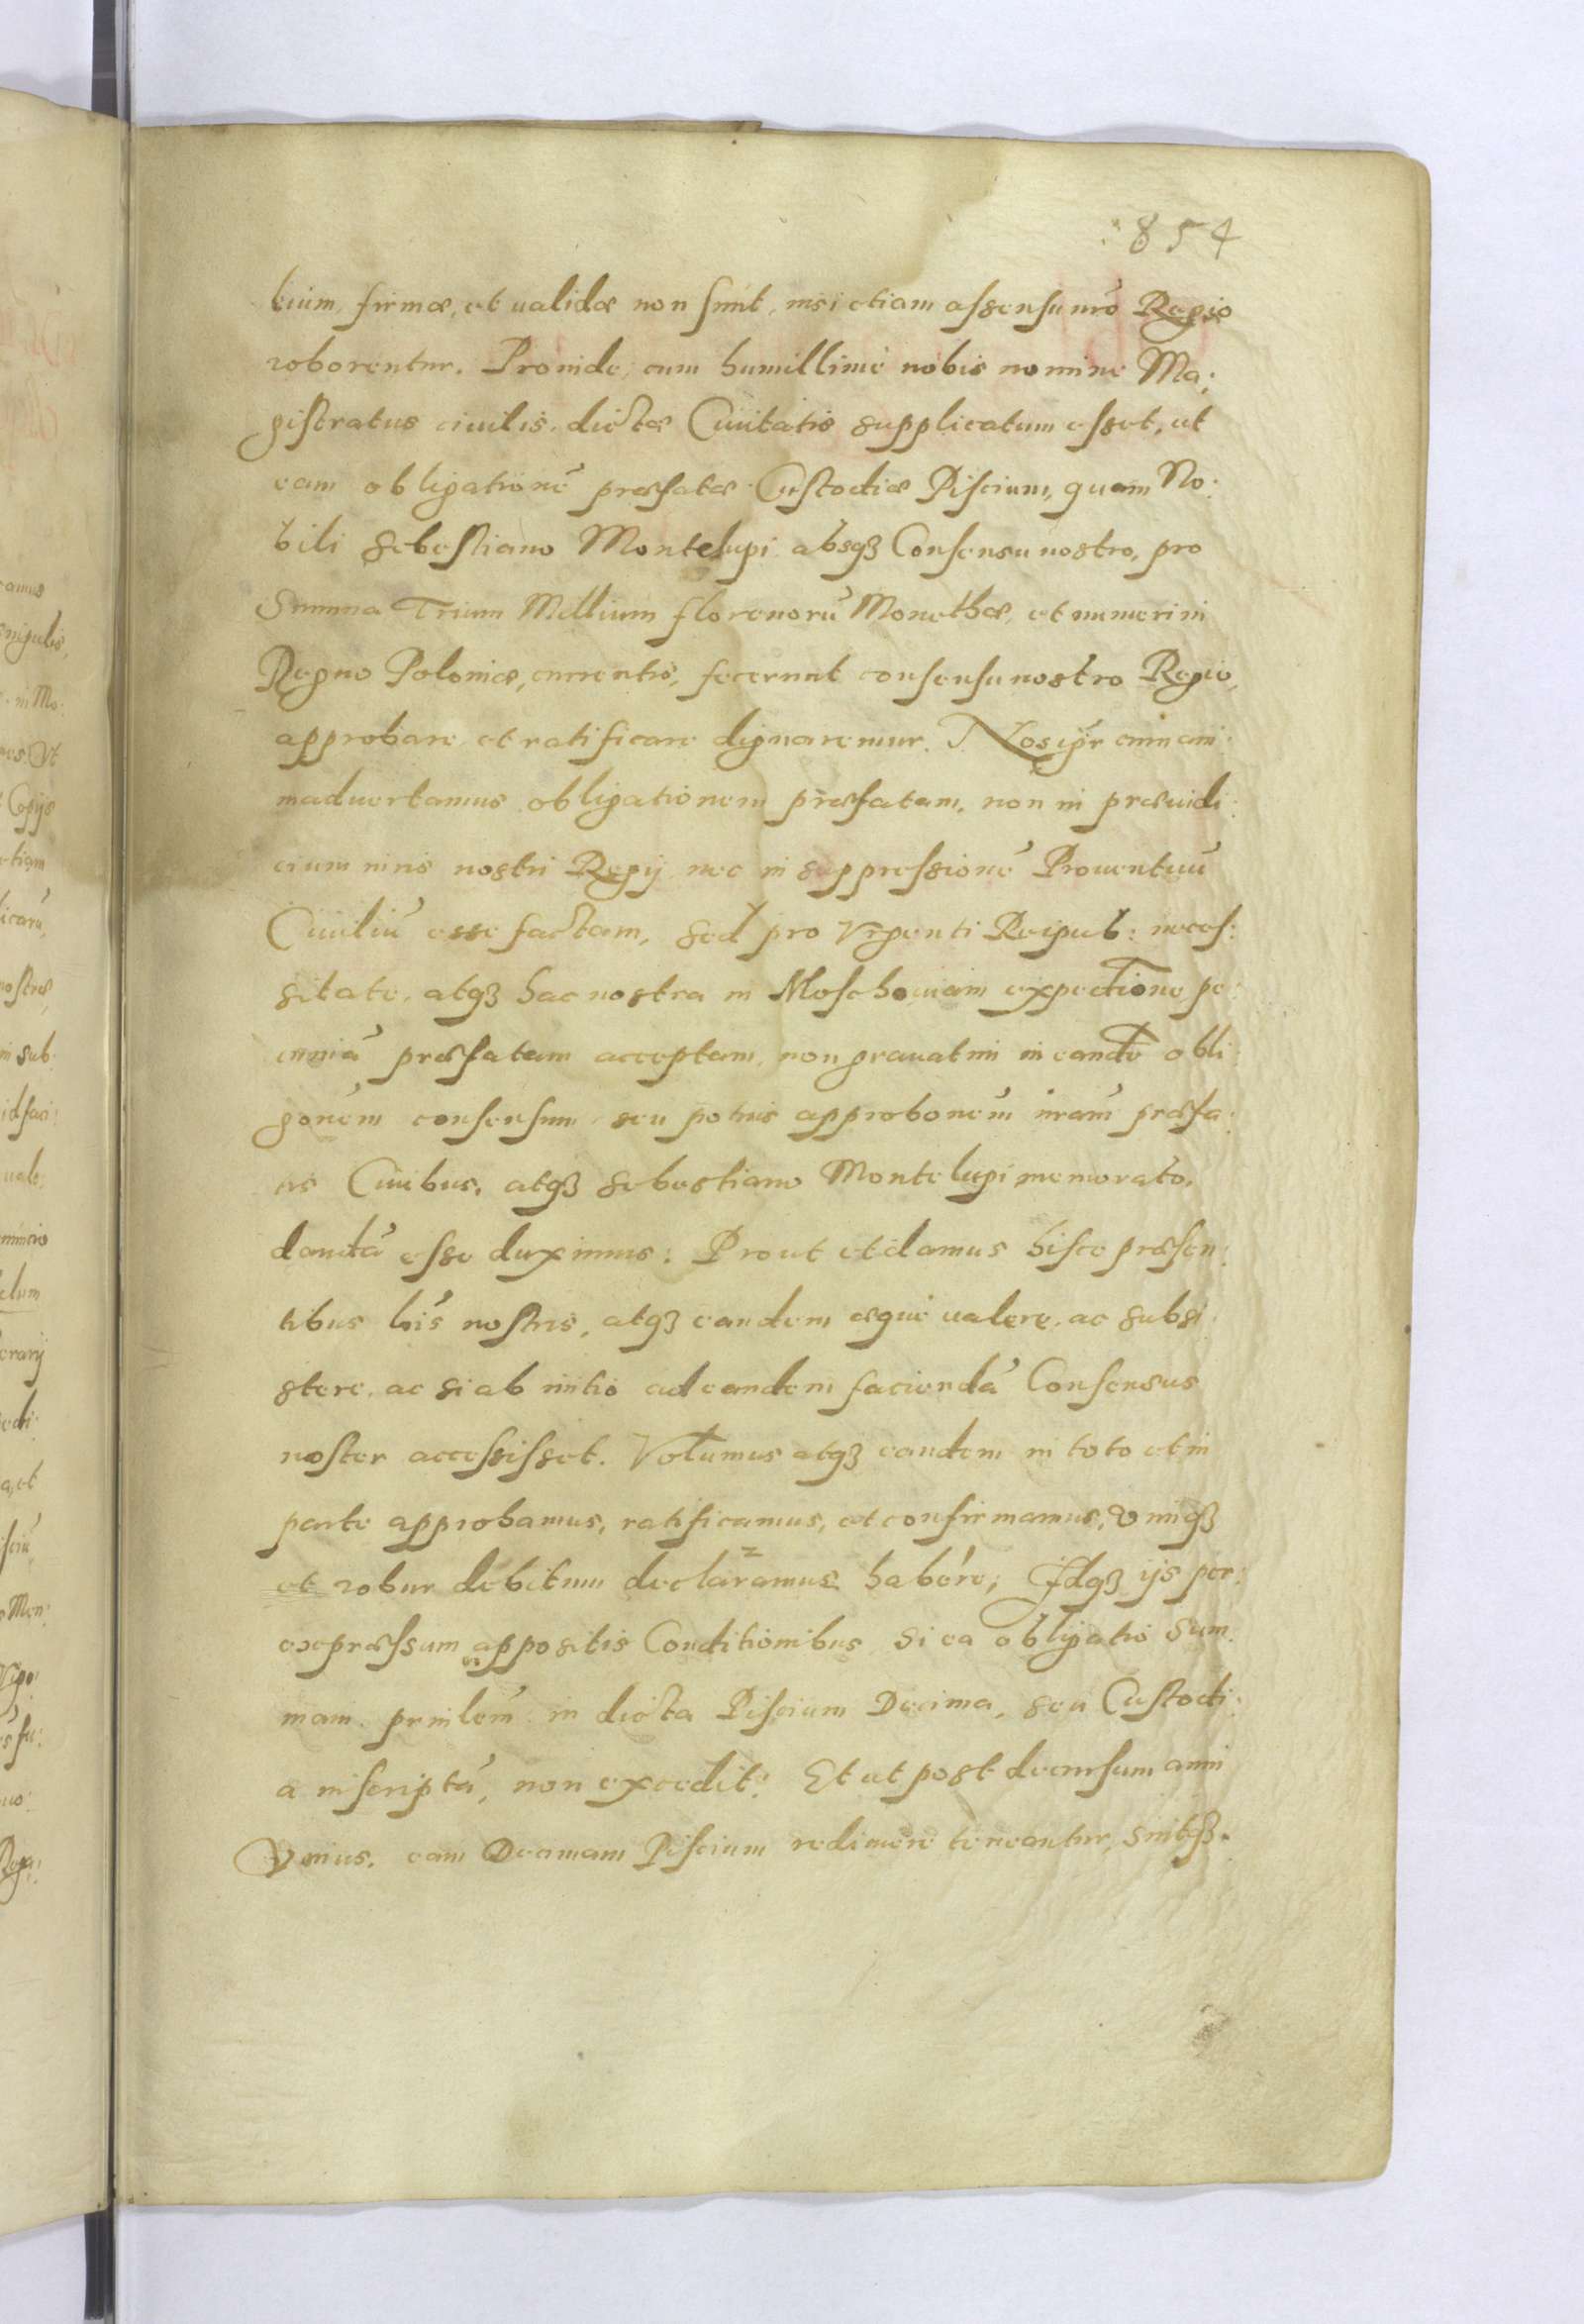 854
tium, firmæ, et ualidæ non sunt, nisi etiam assensu nr̃o Regio
roborentur. Prouide, cum humillime nobis nomine Ma:
gistratus ciuilis, dictæ Ciuitatis supplicatum esset, ut
eam obligationẽ præfatæ Custodiæ Piscium, quam No:
bili Sebastiano Montelupi absqꝫ Consensu nostro, pro
Summa Trium Millium florenorũ Monethæ, et numeri in
Regno Poloniæ, currentis, fecerunt consensu nostro Regio,
approbare et ratificare dignaremur. Nos igr̃ cum ani:
maduertamus obligationem præfatam, non in præiudi:
cium iuris nostri Regij nec in suppressionẽ Prouentuũ
Ciuiliũ esse factam, sed pro Vrgenti Reipub: neces:
sitate, atqꝫ hac nostra in Moschouiam expeditione pe:
cuniã præfatam acceptam, non grauatim in eandẽ obli:
gonẽm consensum seu potius approbonẽm nr̃am præfa:
tis Ciuibus, atqꝫ Sebastiano Montelupi memorato,
dandã esse duximus: Prout et damus hisce præsen:
tibus lr̃is nostris, atqꝫ eandem æque ualere, ac subsi:
stere, ac si ab initio ad eandem faciendã Consensus
noster accessisset. Volumus atqꝫ eandem in toto et in
parte approbamus, ratificamus, et confirmamus, vimqꝫ
et robur debitum declaramus habere; Idqꝫ ijs per:
expressum appositis Conditionibus si ea obligatio Sum:
mam prnilẽm in dicta Piscium Decima, seu Custodi:
a inscriptã, non excedit: Et ut post decursum anni
Vnius, eam Decimam Piscium redimere teneantur, sintqꝫ.